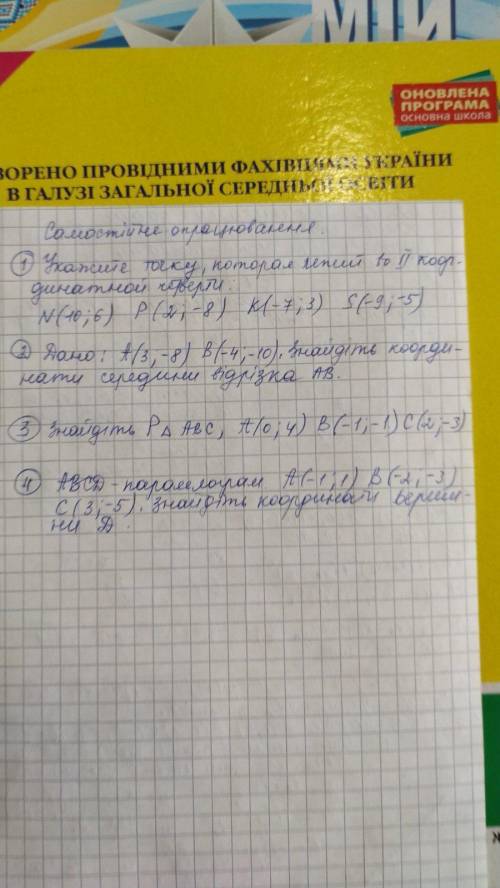 МІЙ
ОНОВЛЕНА
ПРОГРАМА
ОСНОВНА ШКОЛА
ВОРЕНО ПРОВІДНИМИ ФАХІВЦЯМИ УКРАЇНИ
В ГАЛУЗІ ЗАГАЛЬНОЇ СЕРЕДНЬОЇ ОСВІТИ
Самостійне опрацювання.
① Укажите точку, которая лежит во II коор-
динатной четверти.
N(10; 6) P(2; -8) K(-7; 3) S(-9; -5)
② Дано: A(3, -8) B(-4, -10). Знайдіть коорди-
нати середини відрізка AB.
③ Знайдіть P△ABC, A(0; 4) B(-1; -1) C(2; -3)
④ ABCD - паралелограм A(-1; 1) B(-2, -3)
C(3; -5). Знайдіть координати верши-
ни D.